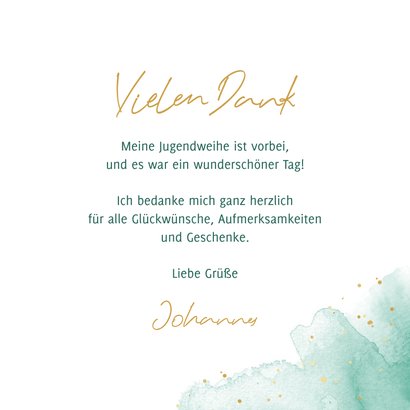 Vielen Dank
Meine Jugendweihe ist vorbei,
und es war ein wunderschöner Tag!
Ich bedanke mich ganz herzlich
für alle Glückwünsche, Aufmerksamkeiten
und Geschenke.
Liebe Grüße
Johannes